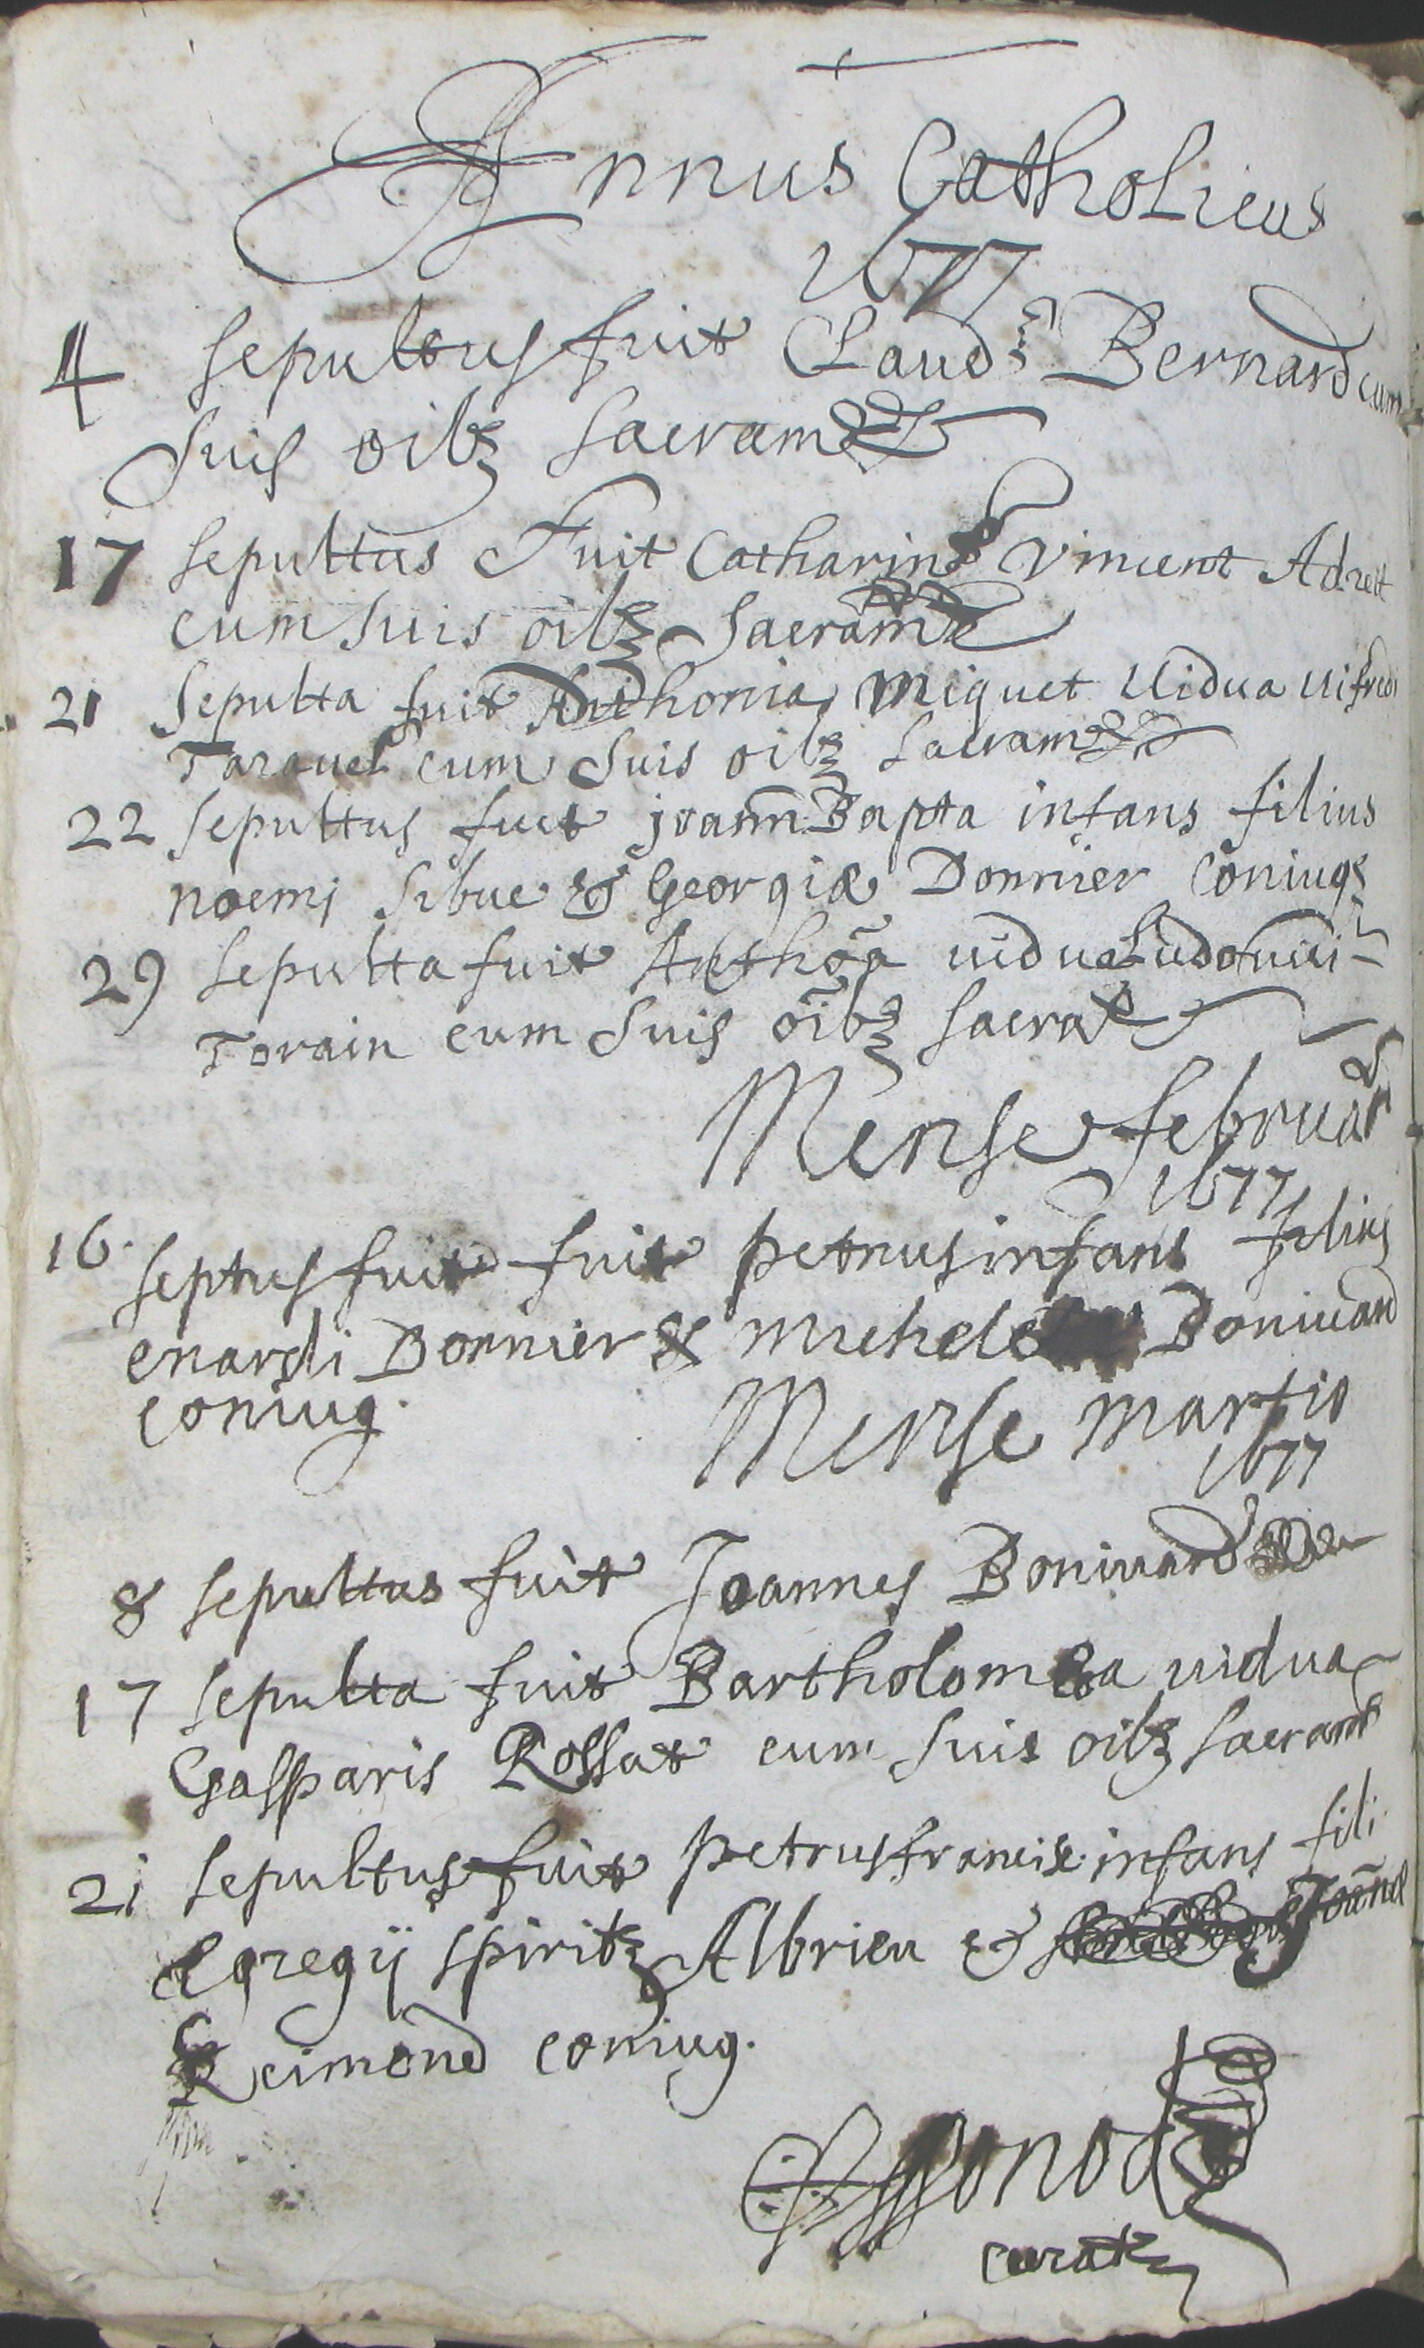 Annus Catholicus
1677
4 sepultus fuit Claud9 Bernard cum
suis oibz sacram
17 sepultus Fuit Catharin Vincent Adreit
cum suis oibz sacram
21 sepulta fuit Anthonia Miquet Uidua uifredi
Tarauel cum suis oibz sacram
22 sepultus fuit joann Bapta infans filius
noemj sibue & Georgiæ Donnier Coniug
29 sepulta fuit Anthoa uidua Ludouici
Torain cum suis oibz sacra
Mense februar
1677
16. septus fuit fuit petrus infans filius
enardi Bonnier & Michele Boniuard
coniug.
Mense martio
1677
8 sepultus fuit Joannes Boniuard
17 sepulta fuit Bartholomea uidua
Gasparis Rossat cum suis oibz sacram
21 sepultus fuit petrus francisc infans fili
Egregij spiritz Albrieu & Joanæ
Reimond coniug.
curatz